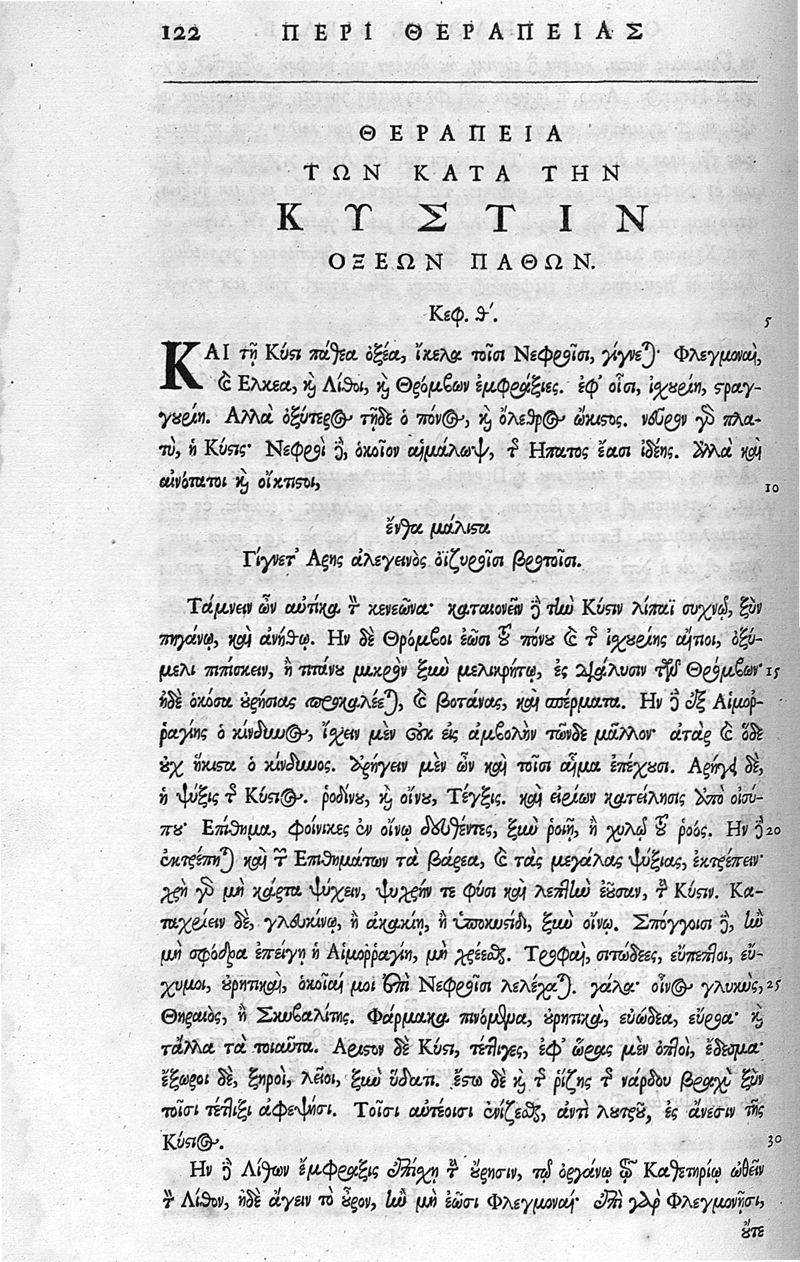 122 ΠΕΡΙ ΘΕΡΑΠΕΙΑΣ
ΘΕΡΑΠΕΙΑ
ΤΩΝ ΚΑΤΑ ΤΗΝ
ΚΥΣΤΙΝ
ΟΞΕΩΝ ΠΑΘΩΝ.
Κεφ. θ΄. 5
ΚΑΙ τῇ Κύστι πάθεα ὀξέα, ἴκελα τοῖσι Νεφροῖσι, γίγνεται· Φλεγμοναὶ,
καὶ Ελκεα, καὶ Λίθοι, καὶ Θρόμβων ἐμφράξιες. ἐφ' οἷσι, ἰχουρίη, στραγ-
γουρίη. Αλλὰ ὀξύτερος τῇδε ὁ πόνος, καὶ ὄλεθρος ὤκιστος. νεῦρον γὰρ πλα-
τὺ, ἡ Κύστις· Νεφροὶ δὲ, ὁκοῖον αἱμάλωψ, τῆς Ηπατος ἔασι ἰδέης. ἀλλὰ καὶ
αἰνότατοι καὶ οἴκτιστοι, 10
ἔνθα μάλιστα
Γίγνετ' Αρης ἀλεγεινὸς ὀϊζυροῖσι βροτοῖσι.
Τάμνειν ὦν αὐτίκα τὸν κενεῶνα· καταιονεῖν δὲ τὴν Κύστιν λίπαϊ συχνῷ, ξὺν
πηγάνῳ, καὶ ἀνήθῳ. Ην δὲ Θρόμβοι ἔωσι τοῦ πόνου καὶ τῆς ἰχουρίης αἴτιοι, ὀξύ-
μελι πιπίσκειν, ἢ τιτάνου μικρὸν ξὺν μελικρήτῳ, ἐς διάλυσιν τῶν Θρόμβων· 15
ἠδὲ ὁκόσα οὐρήσιας προκαλέεται, καὶ βοτάνας, καὶ σπέρματα. Ην δὲ ἐξ Αἱμορ-
ῥαγίης ὁ κίνδυνος, ἴσχειν μὲν οὐκ εἰς ἀμβολὴν τῶνδε μᾶλλον· ἀτὰρ καὶ ὅδε
οὐχ ἥκιστα ὁ κίνδυνος. ἀρήγειν μὲν ὦν καὶ τοῖσι αἷμα ἐπέχουσι. Αρήγει δὲ,
ἡ ψύξις τῆς Κύστιος. ῥοδίνου, καὶ οἴνου, Τέγξις. καὶ εἰρίων κατείλησις ἀπὸ οἰσύ-
που· Επίθημα, φοίνικες ἐν οἴνῳ δευθέντες, ξὺν ῥοιῇ, ἢ χυλῷ τοῦ ῥοός. Ην δὲ 20
ἐκτρέπηται καὶ τῶν Επιθημάτων τὰ βάρεα, καὶ τὰς μεγάλας ψύξιας, ἐκτρέπειν·
χρὴ γὰρ μὴ κάρτα ψύχειν, ψυχρήν τε φύσι καὶ λεπτὴν ἐοῦσαν, τὴν Κύστιν. Κα-
ταχρίειν δὲ, γλευκίνῳ, ἢ ἀκακίῃ, ἢ ὑποκυστίδι, ξὺν οἴνῳ. Σπόγγοισι δὲ, ἢν
μὴ σφόδρα ἐπείγῃ ἡ Αἱμοῤῥαγίη, μὴ χρέεσθαι. Τροφαὶ, σιτώδεες, εὔπεπτοι, εὔ-
χυμοι, οὐρητικαὶ, ὁκοῖαί μοι ἐπὶ Νεφροῖσι λελέχαται. γάλα· οἶνος γλυκὺς, 25
Θηραῖος, ἢ Σκυβαλίτης. Φάρμακα πινόμενα, οὐρητικὰ, εὐώδεα, εὔροα· καὶ
τἄλλα τὰ τοιαῦτα. Αριστον δὲ Κύστι, τέττιγες, ἐφ' ὥρας μὲν ὀπτοὶ, ἔδεσμα·
ἔξωροι δὲ, ξηροὶ, λεῖοι, ξὺν ὕδατι. ἔστω δὲ καὶ τῆς ῥίζης τῆς νάρδου βραχὺ ξὺν
τοῖσι τέττιξι ἀφεψήσι. Τοῖσι αὐτέοισι ἐνίζεσθαι, ἀντὶ λουτροῦ, ἐς ἄνεσιν τῆς
Κύστιος. 30
Ην δὲ Λίθων ἔμφραξις ἐπίσχῃ τὴν οὔρησιν, τῷ ὀργάνῳ τῷ Καθετηρίῳ ὠθεῖν
τὸν Λίθον, ἠδὲ ἄγειν τὸ οὖρον, ἢν μὴ ἔωσι Φλεγμοναί· ἐπὶ γὰρ Φλεγμονῇσι,
οὔτε